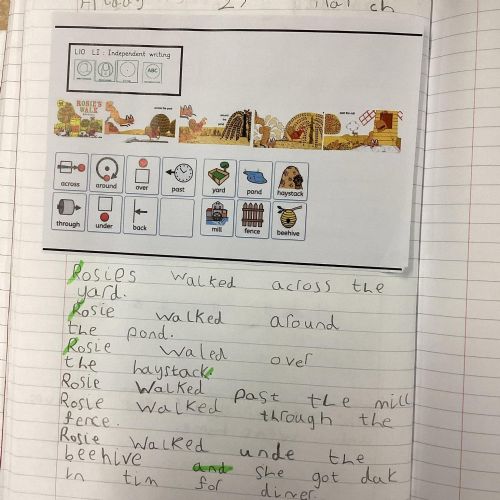 Friday 29 March
LIO LI: Independent writing
ABC
ROSIE'S WALK
across the yard
past the mill
across around over past yard pond haystack
through under back mill fence beehive
Rosies walked across the
yard.
Rosie walked around
the pond.
Rosie waled over
the haystack.
Rosie walked past the mill
Rosie walked through the
fence.
Rosie walked unde the
beehive and she got dak
in tim for diner.